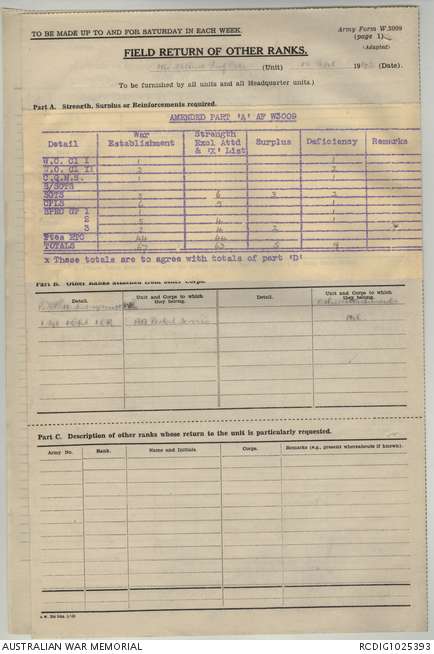 TO BE MADE UP TO AND FOR SATURDAY IN EACH WEEK.
Army Form W 3009
(page 1)
(Adapted)
FIELD RETURN OF OTHER RANKS.
(Unit) 19 (Date).
To be furnished by all units and all Headquarter units.)
Part A. Strength, Surplus or Reinforcements required.
AMENDED PART 'A' AF W3009
Detail War Establishment Strength Excl Attd & 'X' List Surplus Deficiency Remarks
W.O. Cl I 1 1
W.O. Cl II 2 2
C.Q.M.S. 1 1
S/SGTS
SGTS 6 3
CPLS
SPEC GP 1
2 5 4
3 2
Ptes ETC 44 44
TOTALS 67 63 5 9
x These totals are to agree with totals of part 'D'
Part B. Other Ranks attached from other Corps.
Detail. Unit and Corps to which they belong. Detail. Unit and Corps to which they belong.
Part C. Description of other ranks whose return to the unit is particularly requested.
Army No. Rank. Name and Initials. Corps. Remarks (e.g., present whereabouts if known).
AUSTRALIAN WAR MEMORIAL
RCDIG1025393